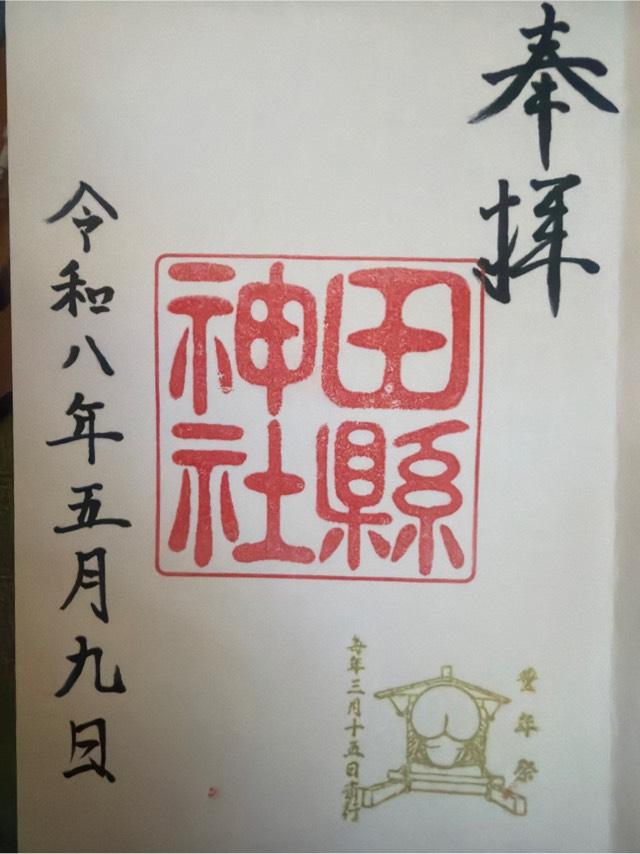 奉拝
田縣
神社
豊年祭
毎年三月十五日斎行
令和八年五月九日